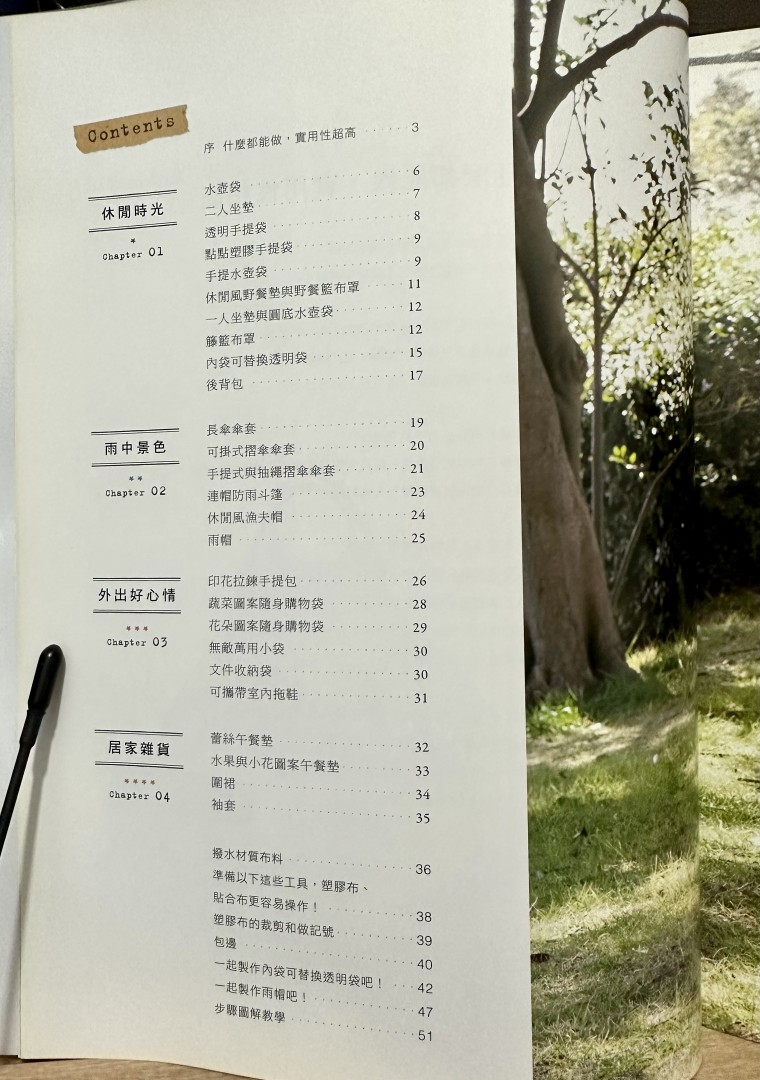 Contents
序 什麼都能做，實用性超高 ······ 3
休閒時光
Chapter 01
水壺袋 ······ 6
二人坐墊 ······ 7
透明手提袋 ······ 8
點點塑膠手提袋 ······ 9
手提水壺袋 ······ 9
休閒風野餐墊與野餐籃布罩 ······ 11
一人坐墊與圓底水壺袋 ······ 12
籐籃布罩 ······ 12
內袋可替換透明袋 ······ 15
後背包 ······ 17
雨中景色
Chapter 02
長傘傘套 ······ 19
可掛式摺傘傘套 ······ 20
手提式與抽繩摺傘傘套 ······ 21
連帽防雨斗篷 ······ 23
休閒風漁夫帽 ······ 24
雨帽 ······ 25
外出好心情
Chapter 03
印花拉鍊手提包 ······ 26
蔬菜圖案隨身購物袋 ······ 28
花朵圖案隨身購物袋 ······ 29
無敵萬用小袋 ······ 30
文件收納袋 ······ 30
可攜帶室內拖鞋 ······ 31
居家雜貨
Chapter 04
蕾絲午餐墊 ······ 32
水果與小花圖案午餐墊 ······ 33
圍裙 ······ 34
袖套 ······ 35
撥水材質布料 ······ 36
準備以下這些工具，塑膠布、
貼合布更容易操作！ ······ 38
塑膠布的裁剪和做記號 ······ 39
包邊 ······ 40
一起製作內袋可替換透明袋吧！ ······ 42
一起製作雨帽吧！ ······ 47
步驟圖解教學 ······ 51